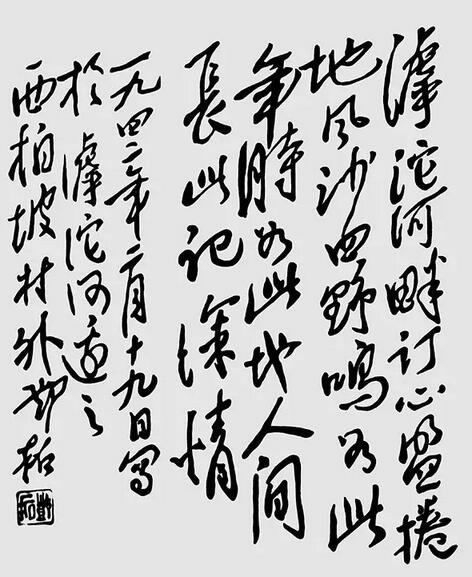 滹沱河畔订心盟捲
地风沙四野鸣如此
年时如此地人间
長此记深情
一九四二年二月十九日写
於滹沱河边之
西柏坡村外邓拓